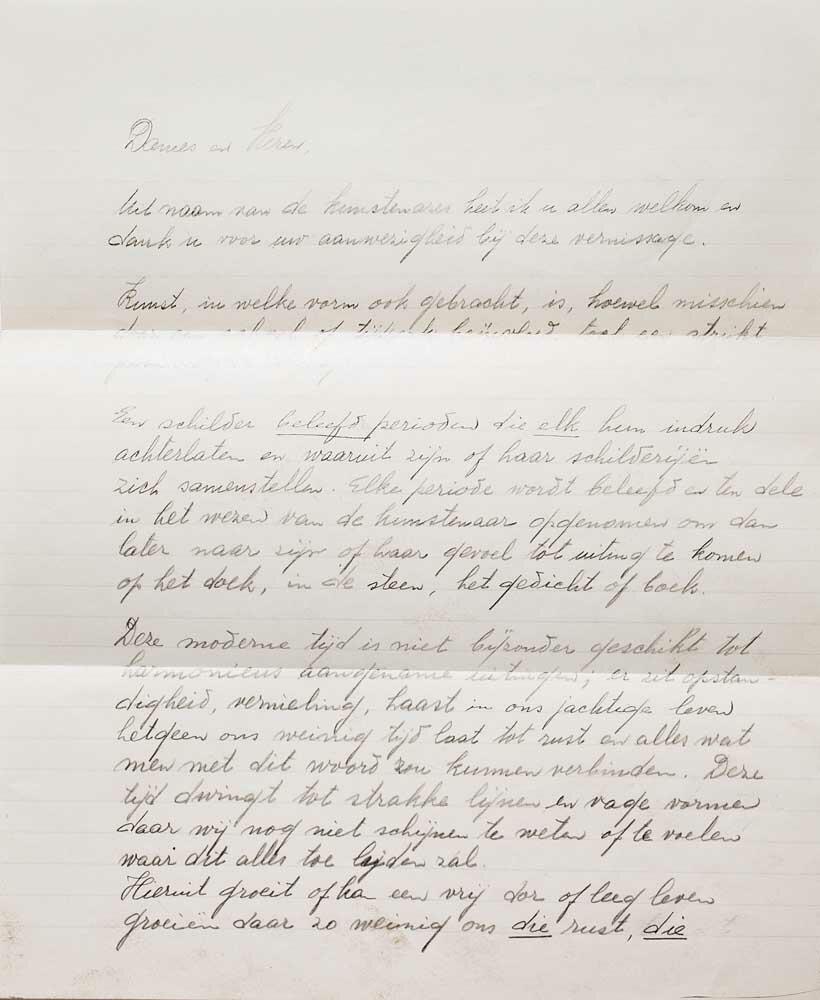 Dames en Heren,
Uit naam van de kunstenares heet ik u allen welkom en
dank u voor uw aanwezigheid bij deze vernissage.
Kunst, in welke vorm ook gebracht, is, hoewel misschien
door een school of tijdperk beïnvloed, toch een strikt
Een schilder beleefd perioden die elk hun indruk
achterlaten en waaruit zijn of haar schilderijën
zich samenstellen. Elke periode wordt beleefd en ten dele
in het wezen van de kunstenaar opgenomen om dan
later naar zijn of haar gevoel tot uiting te komen
op het doek, in de steen, het gedicht of boek.
Deze moderne tijd is niet bijzonder geschikt tot
harmonieus aangename uitingen; er zit opstan-
digheid, vernieling, haast in ons jachtige leven
hetgeen ons weinig tijd laat tot rust en alles wat
men met dit woord zou kunnen verbinden. Deze
tijd dwingt tot strakke lijnen en vage vormen
daar wij nog niet schijnen te weten of te voelen
waar dit alles toe leiden zal.
Hieruit groeit of kan een vrij dor of leeg leven
groeiën daar zo weinig ons die rust, die